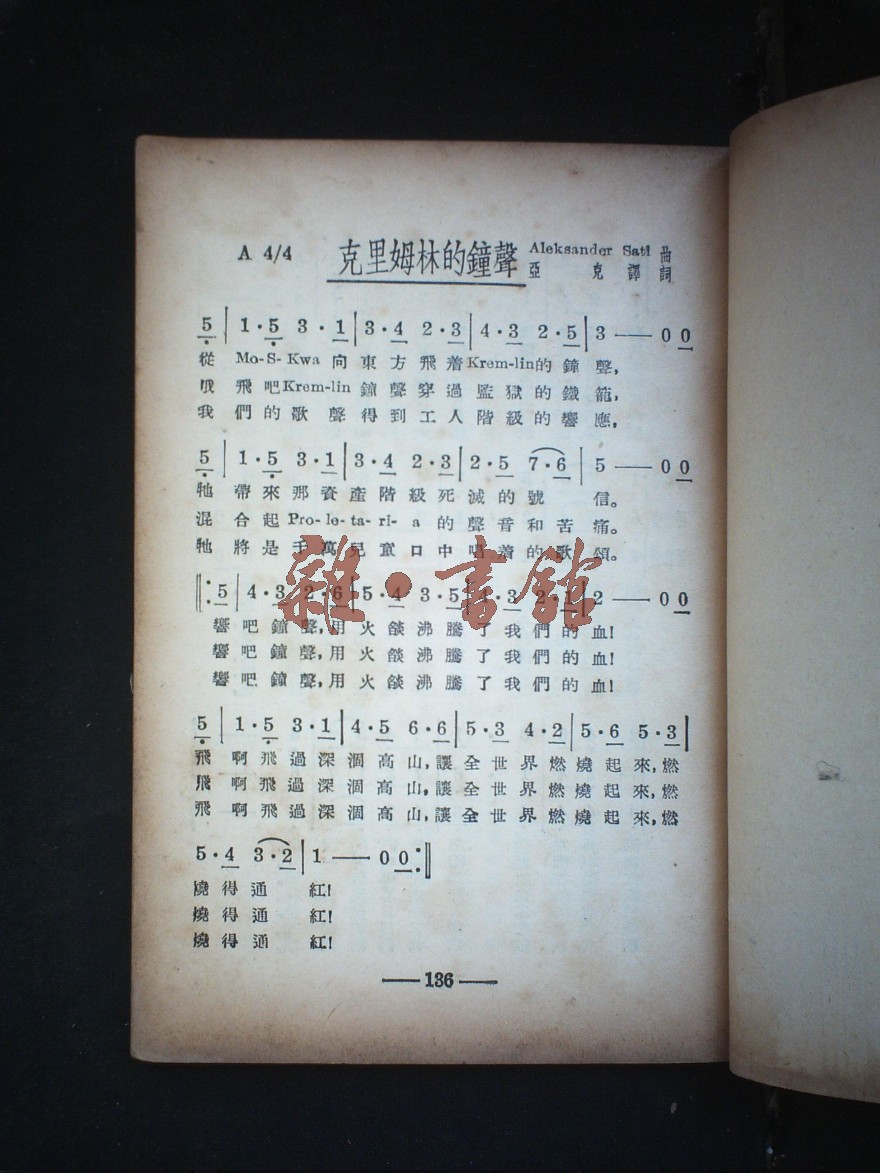 A 4/4 克里姆林的鐘聲 Aleksander Sati 曲
亞克譯詞
5 | 1·5 3·1 | 3·4 2·3 | 4·3 2·5 | 3 —— 0 0
從 Mo-S-Kwa 向東方飛着Krem-lin的鐘聲,
飛吧Krem-lin鐘聲穿過監獄的鐵籠,
我們的歌聲得到工人階級的響應,
5 | 1·5 3·1 | 3·4 2·3 | 2·5 7·6 | 5 —— 0 0
牠帶來那資產階級死滅的號信。
混合起Pro-le-ta-ri-a的聲音和苦痛。
牠將是千萬兒童口中唱着的歌頌。
雜·書館
‖: 5 | 4·3 2·6 | 5·4 3·5 | 4·3 2·1 | 2 —— 0 0
響吧鐘聲,用火燄沸騰了我們的血!
響吧鐘聲,用火燄沸騰了我們的血!
響吧鐘聲,用火燄沸騰了我們的血!
5 | 1·5 3·1 | 4·5 6·6 | 5·3 4·2 | 5·6 5·3 |
飛啊飛過深涸高山,讓全世界燃燒起來,燃
飛啊飛過深涸高山,讓全世界燃燒起來,燃
飛啊飛過深涸高山,讓全世界燃燒起來,燃
5·4 3·2 | 1 —— 0 0 :‖
燒得通紅!
燒得通紅!
燒得通紅!
—— 136 ——